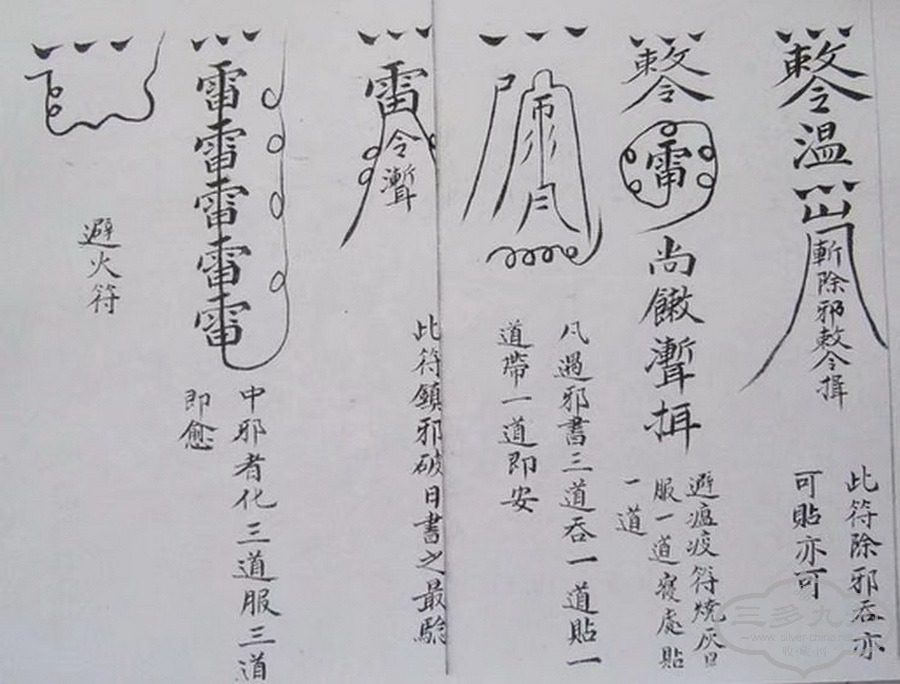 敕令
溫
斬除邪敕令揖
此符除邪吞亦
可貼亦可
敕令
雷
尚
避瘟疫符燒灰日
服一道寢處貼
一道
凡遇邪書三道吞一道貼一
道帶一道即安
雷
令
此符鎮邪破日書之最驗
雷雷雷雷雷
中邪者化三道服三道
即愈
避火符